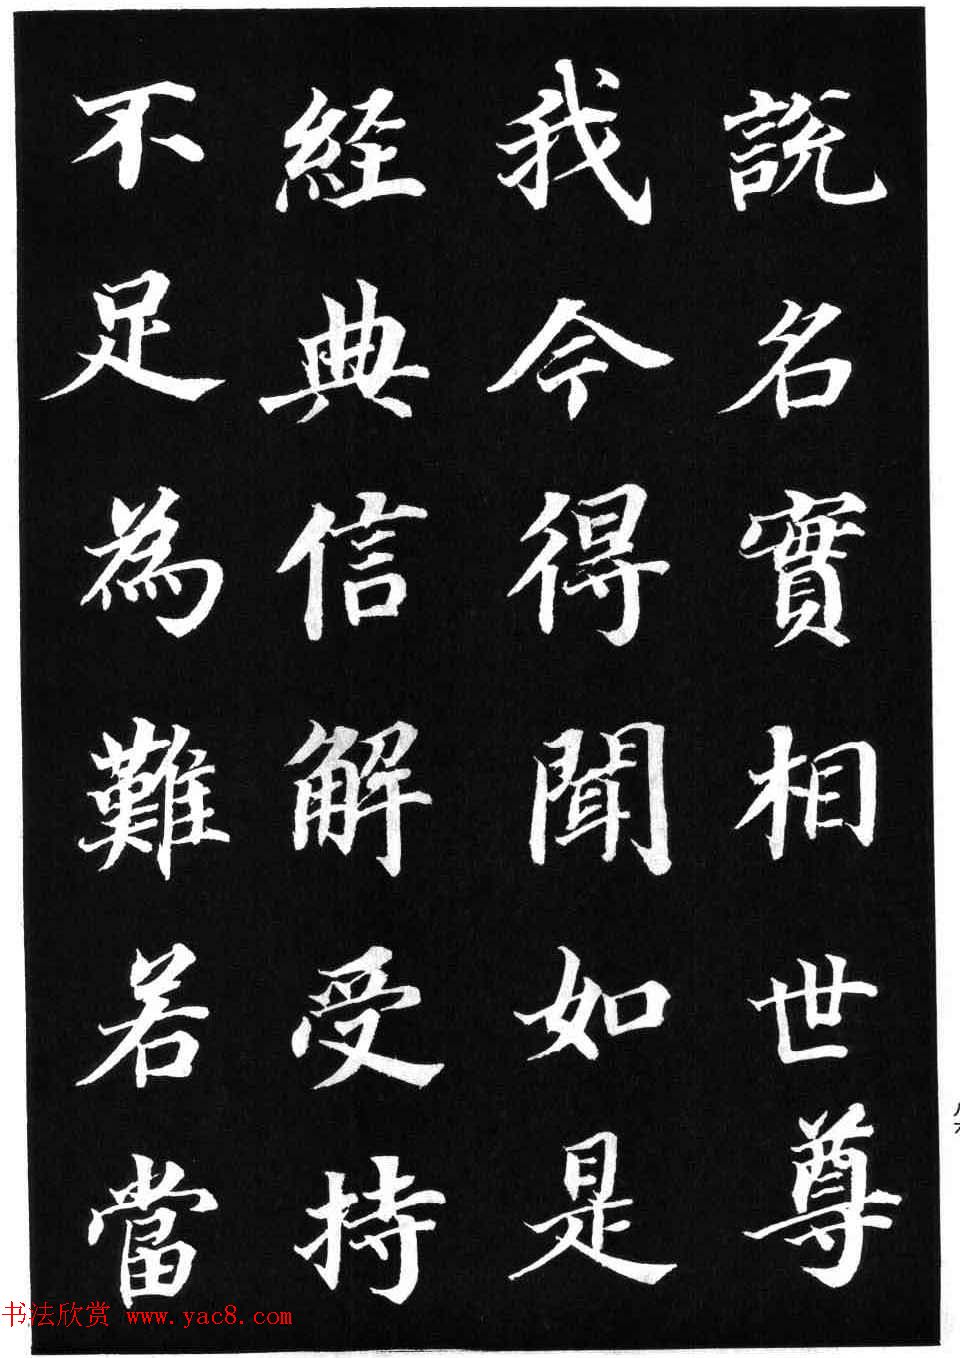 説名實相世尊
我今得聞如是
経典信解受持
不足為難若當
书法欣赏 www.yac8.com